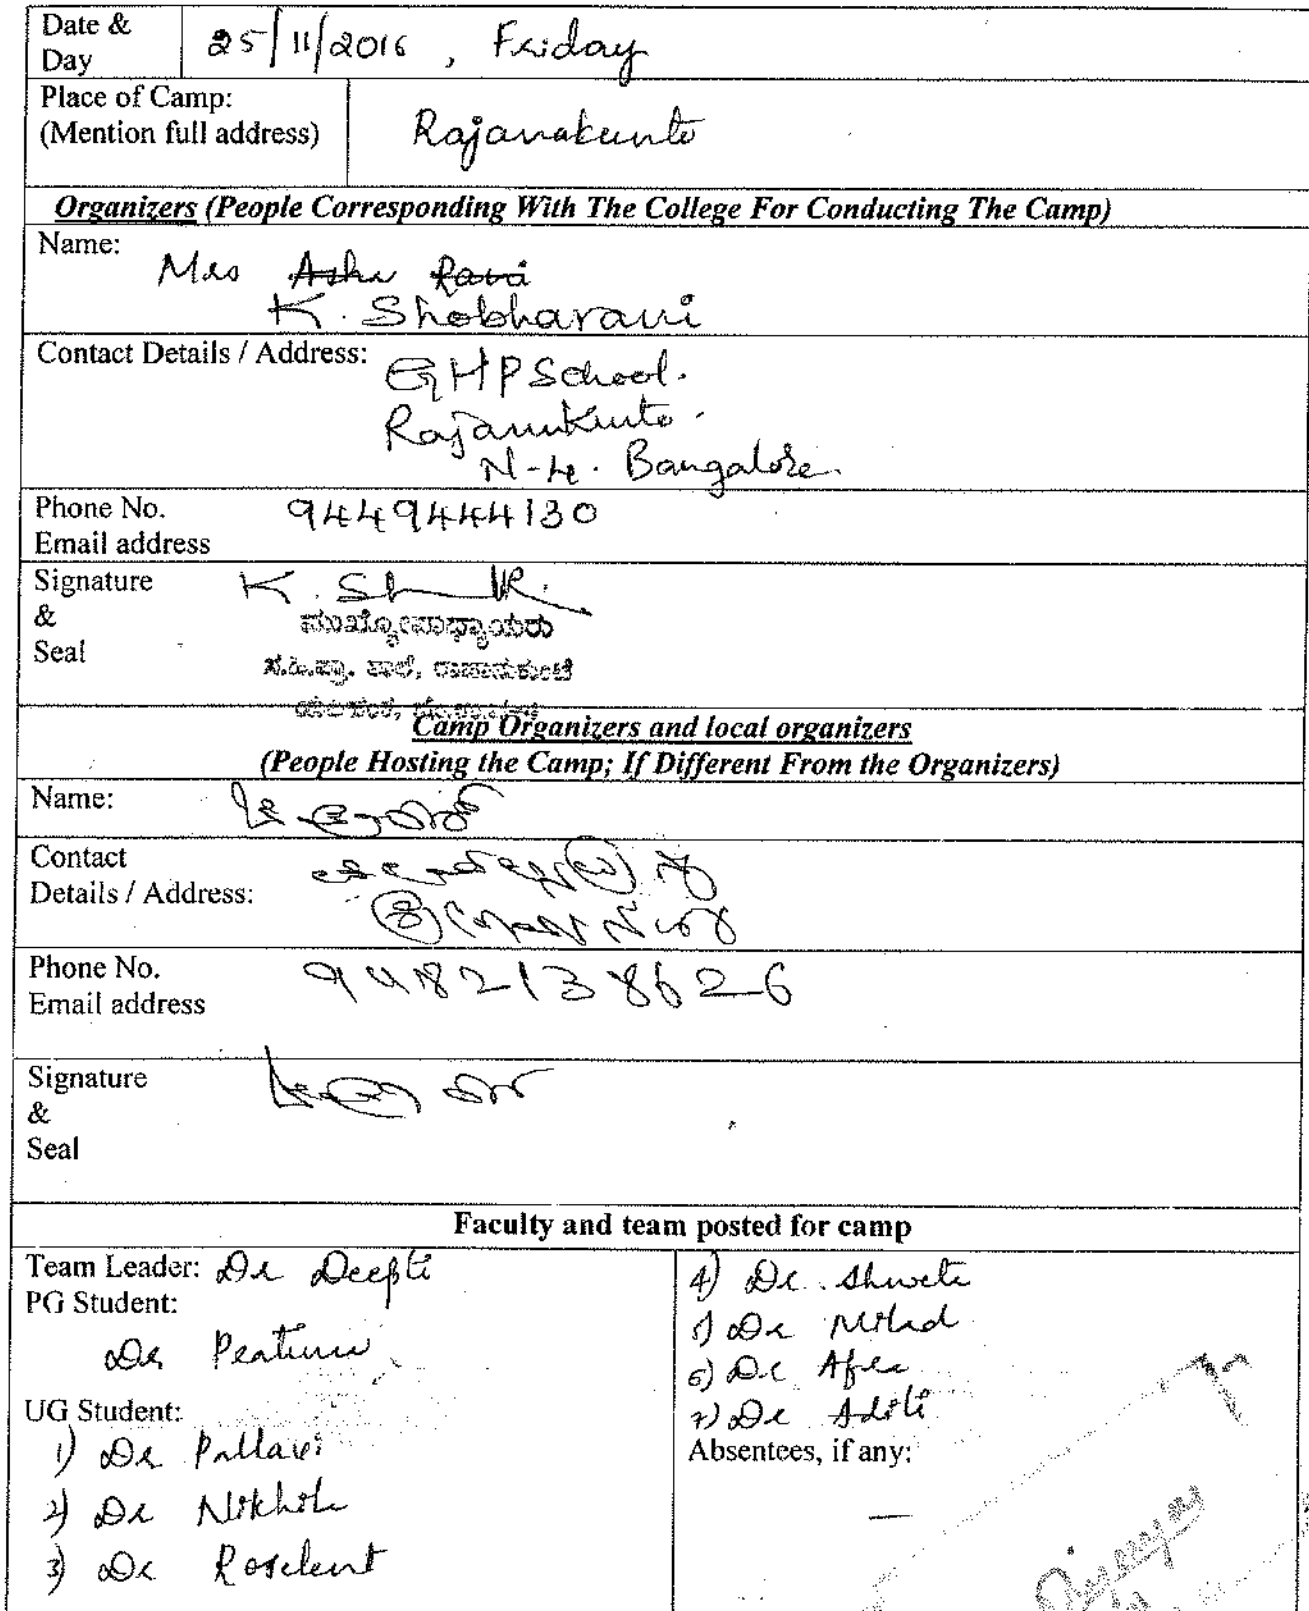 Date &
Day
25/11/2016 , Friday
Place of Camp:
(Mention full address)
Rajanakunte
Organizers (People Corresponding With The College For Conducting The Camp)
Name:
Mrs Asha Ravi
K. Shobharani
Contact Details / Address:
GHPSchool.
Rajanukunte.
Bangalore.
Phone No.
9449444130
Email address
Signature
&
Seal
ಮುಖ್ಯೋಪಾಧ್ಯಾಯರು
ಸ.ಹಿ.ಪ್ರಾ. ಶಾಲೆ, ರಾಜಾನುಕುಂಟೆ
Camp Organizers and local organizers
(People Hosting the Camp; If Different From the Organizers)
Name:
Contact
Details / Address:
Phone No.
9482138626
Email address
Signature
&
Seal
Faculty and team posted for camp
Team Leader: Dr Deepti
PG Student:
Dr
UG Student:
1) Dr Pallavi
2) Dr Nikhil
3) Dr
4) Dr. Shweta
5) Dr Milad
6) Dr
7) Dr Aditi
Absentees, if any:
—